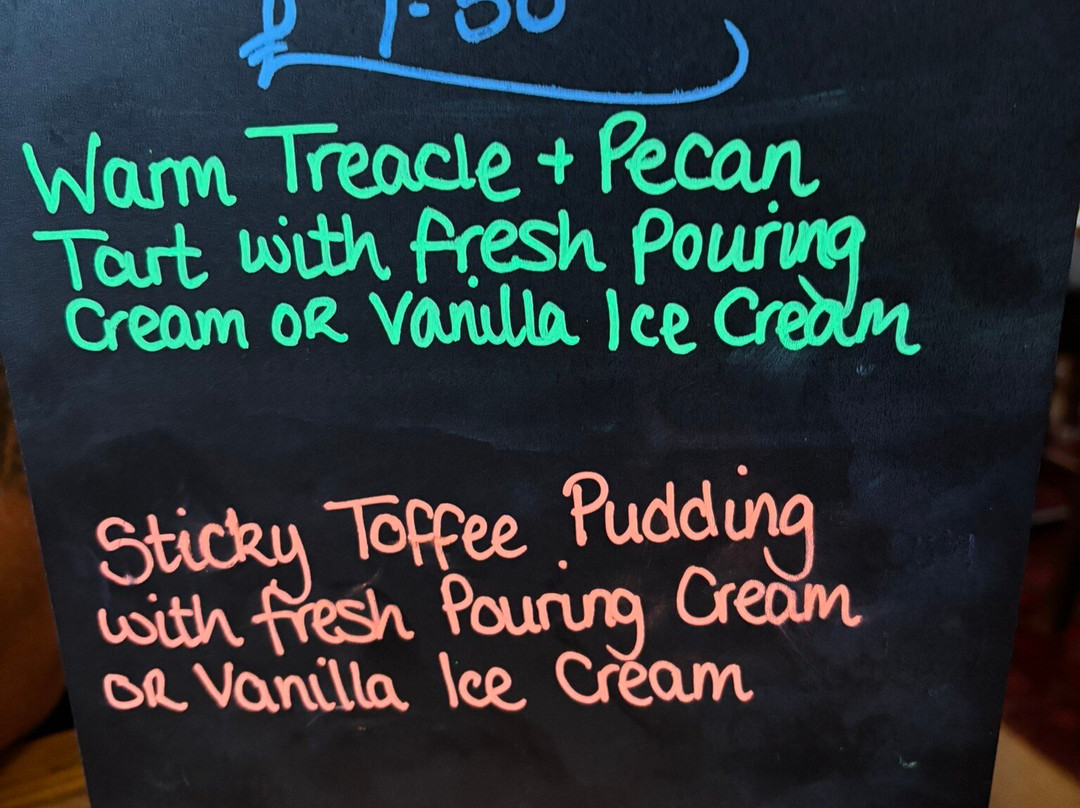 Warm Treacle + Pecan
Tart with fresh Pouring
Cream OR Vanilla Ice Cream
Sticky Toffee Pudding
with fresh Pouring Cream
OR Vanilla Ice Cream